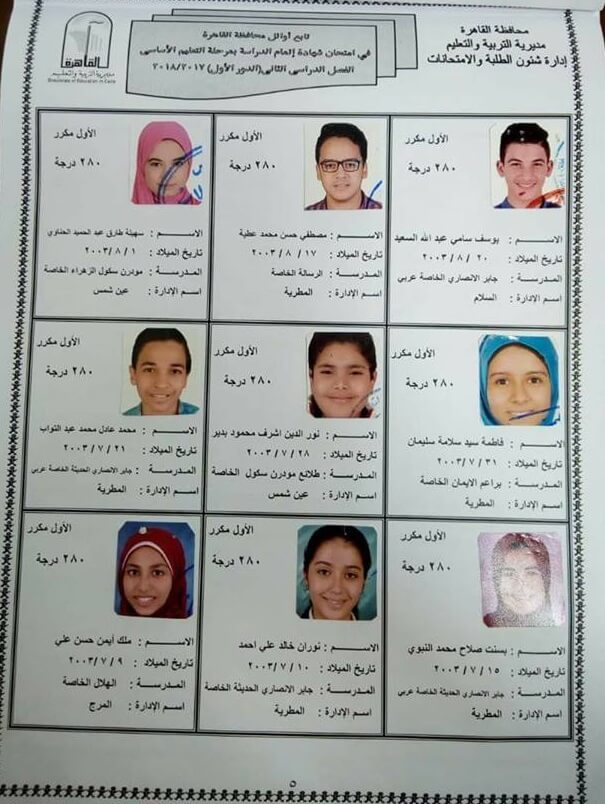 محافظة القاهرة
مديرية التربية والتعليم
إدارة شئون الطلبة والامتحانات
تابع أوائل محافظة القاهرة
في امتحان شهادة إتمام الدراسة بمرحلة التعليم الأساسى
الفصل الدراسى الثانى (الدور الأول) ٢٠١٨/٢٠١٧
القاهرة
مديرية التربية والتعليم
Directorate of Education in Cairo
الأول مكرر
٢٨٠ درجة
الاســـم : يوسف سامي عبد الله السعيد
تاريخ الميلاد : ٢٠ / ٨ / ٢٠٠٣
المدرســة : جابر الانصاري الخاصة عربي
اسـم الإدارة : السلام
الأول مكرر
٢٨٠ درجة
الاســـم : مصطفي حسن محمد عطية
تاريخ الميلاد : ١٧ / ٨ / ٢٠٠٣
المدرســة : الرسالة الخاصة
اسـم الإدارة : المطرية
الأول مكرر
٢٨٠ درجة
الاســـم : سهيلة طارق عبد الحميد الحناوي
تاريخ الميلاد : ١ / ٨ / ٢٠٠٣
المدرســة : مودرن سكول الزهراء الخاصة
اسـم الإدارة : عين شمس
الأول مكرر
٢٨٠ درجة
الاســـم : فاطمة سيد سلامة سليمان
تاريخ الميلاد : ٣١ / ٧ / ٢٠٠٣
المدرســة : براعم الايمان الخاصة
اسـم الإدارة : المطرية
الأول مكرر
٢٨٠ درجة
الاســـم : نور الدين اشرف محمود بدير
تاريخ الميلاد : ٢٨ / ٧ / ٢٠٠٣
المدرســة : طلائع مودرن سكول الخاصة
اسـم الإدارة : عين شمس
الأول مكرر
٢٨٠ درجة
الاســـم : محمد عادل محمد عبد التواب
تاريخ الميلاد : ٢١ / ٧ / ٢٠٠٣
المدرســة : جابر الانصاري الحديثة الخاصة عربي
اسـم الإدارة : المطرية
الأول مكرر
٢٨٠ درجة
الاســـم : بسنت صلاح محمد النبوي
تاريخ الميلاد : ١٥ / ٧ / ٢٠٠٣
المدرســة : جابر الانصاري الحديثة الخاصة عربي
اسـم الإدارة : المطرية
الأول مكرر
٢٨٠ درجة
الاســـم : نوران خالد علي احمد
تاريخ الميلاد : ١٠ / ٧ / ٢٠٠٣
المدرســة : جابر الانصاري الحديثة الخاصة
اسـم الإدارة : المطرية
الأول مكرر
٢٨٠ درجة
الاســـم : ملك أيمن حسن علي
تاريخ الميلاد : ٩ / ٧ / ٢٠٠٣
المدرســة : الهلال الخاصة
اسـم الإدارة : المرج
٥